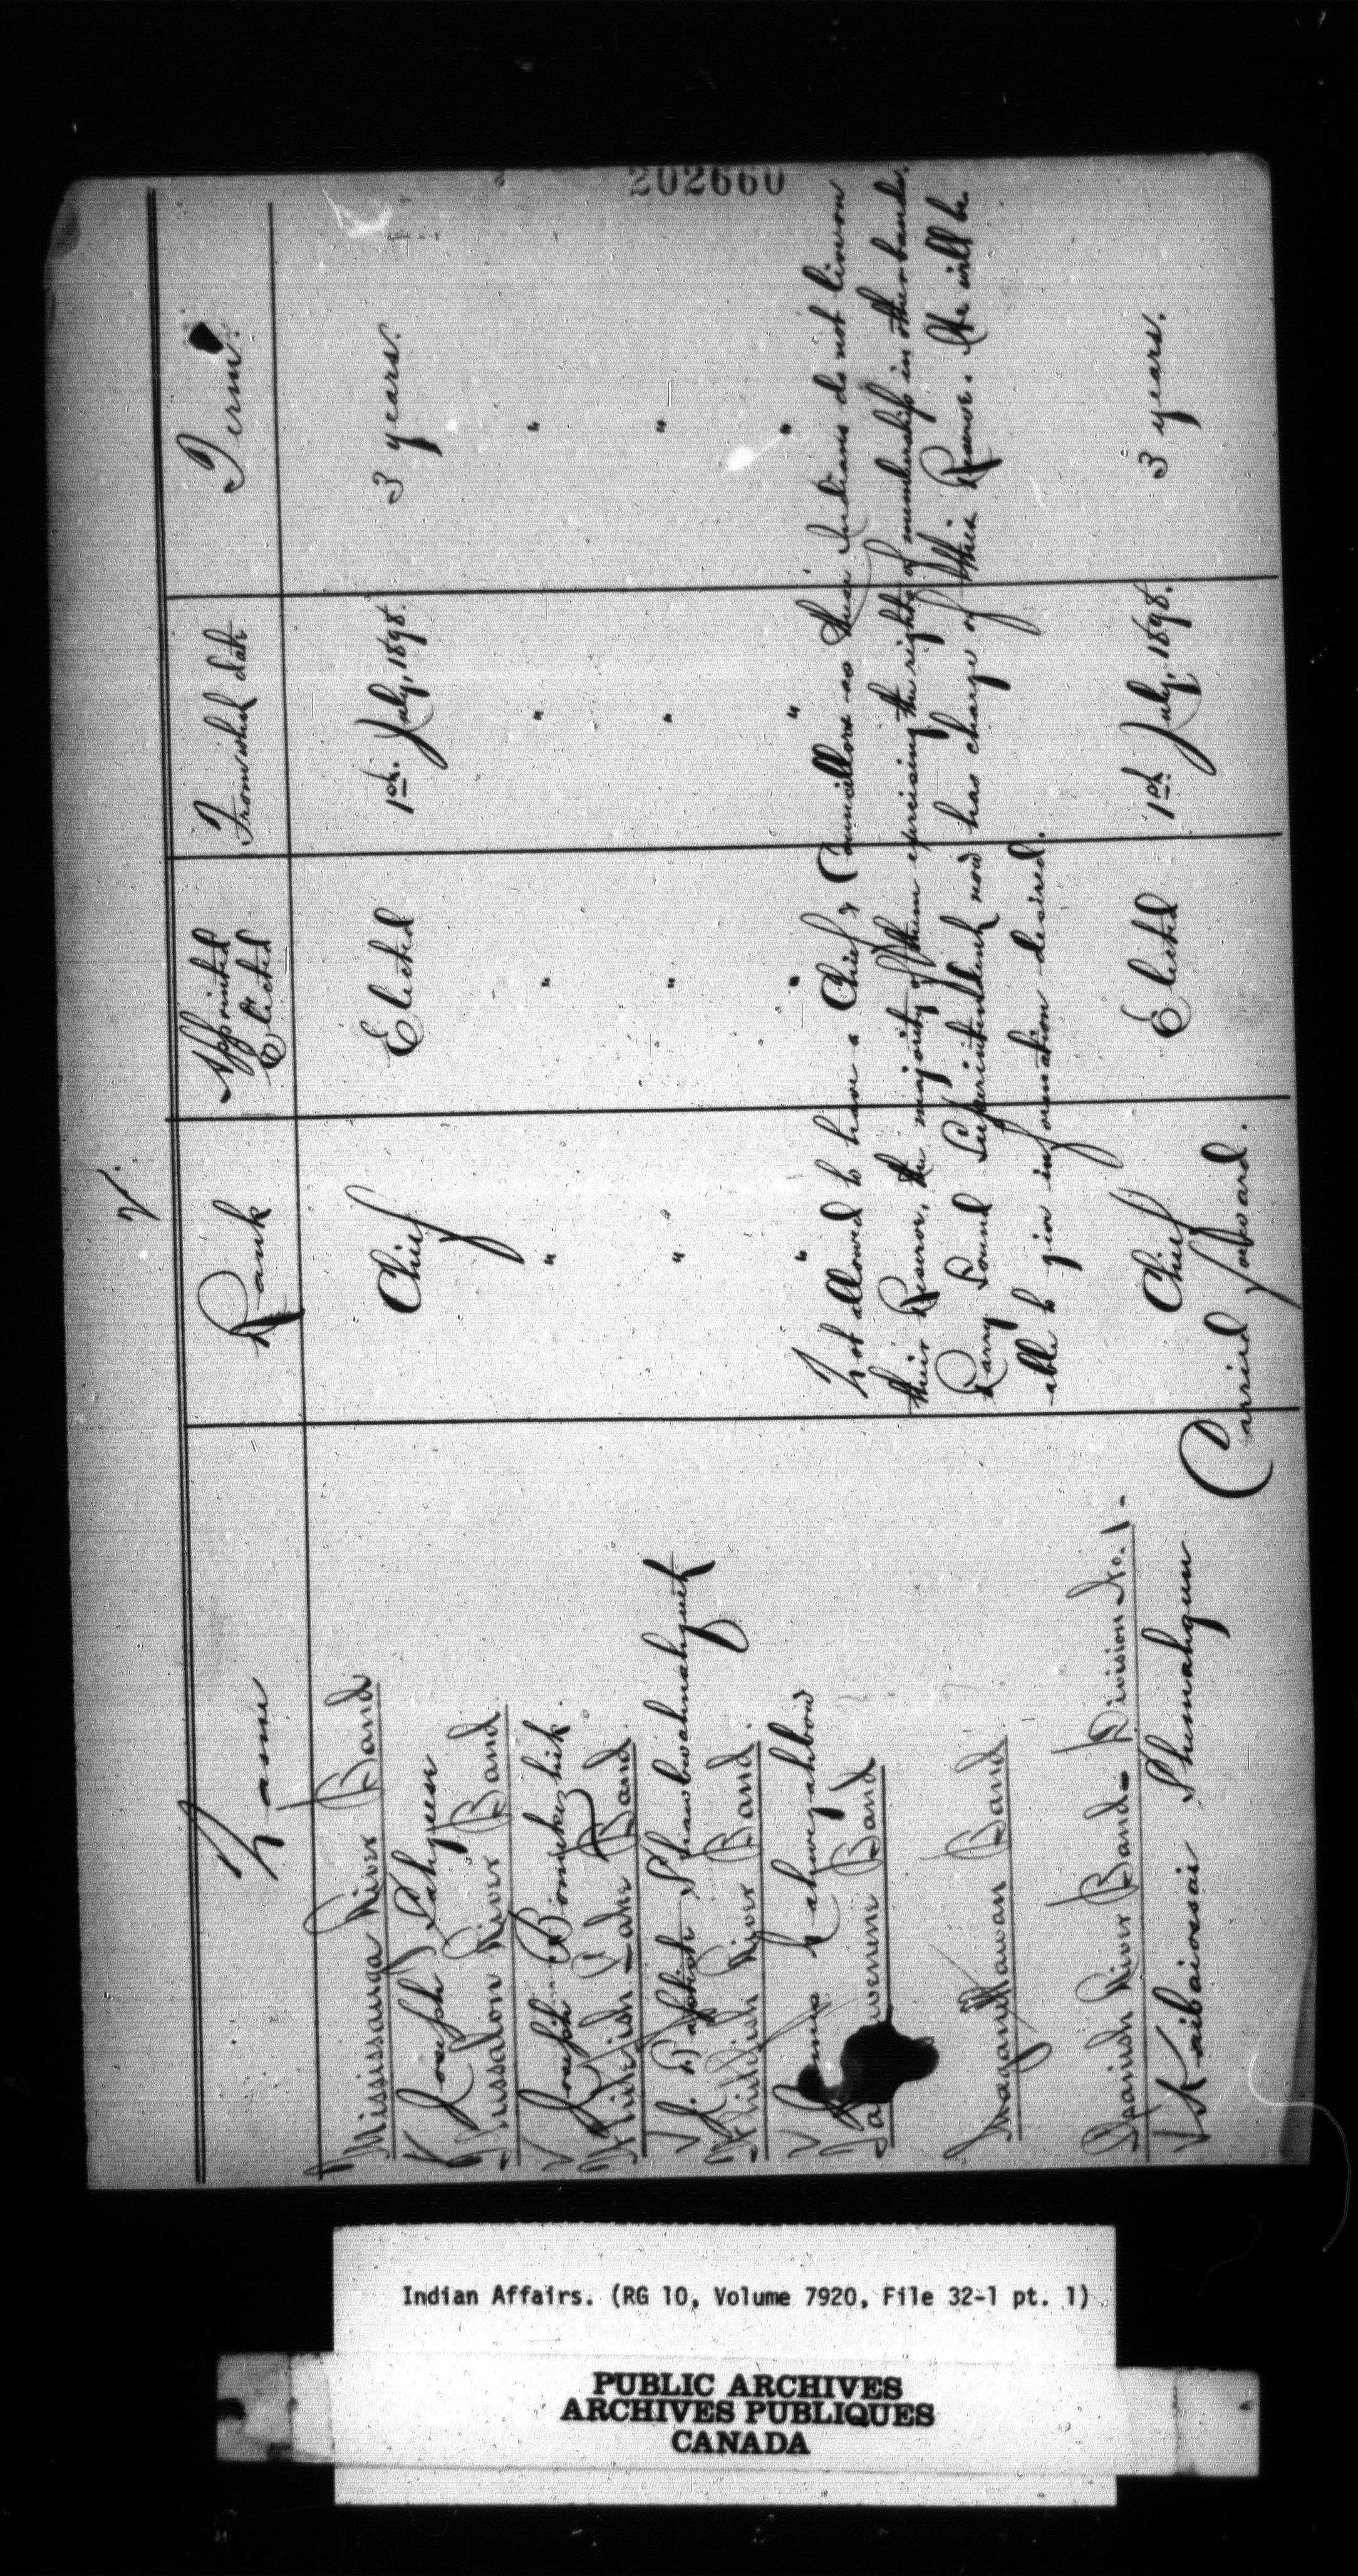 202660
2.
Name Rank Appointed or Elected From which date Term.
Mississauga River Band
Joseph Sahyeer Chief Elected 1st. July, 1898. 3 years.
Thessalon River Band.
Joseph Bonekezhik. " " " "
Whitefish Lake Band.
J. Baptiste Shawbwahnahquet " " " "
Whitefish River Band.
James Nahwegahbow " " " "
Band
Not allowed to have a Chief & Councillors as these Indians do not live on
their Reserve, the majority of them exercising the rights of membership in other bands.
Parry Sound Superintendent now has charge of this Reserve. He will be
able to give information desired.
Magnettawan Band
Spanish River Band. Division No. 1-
Kaibaiosai Shemahgun Chief Elected 1st July, 1898. 3 years.
Carried forward.
Indian Affairs. (RG 10, Volume 7920, File 32-1 pt. 1)
PUBLIC ARCHIVES
ARCHIVES PUBLIQUES
CANADA